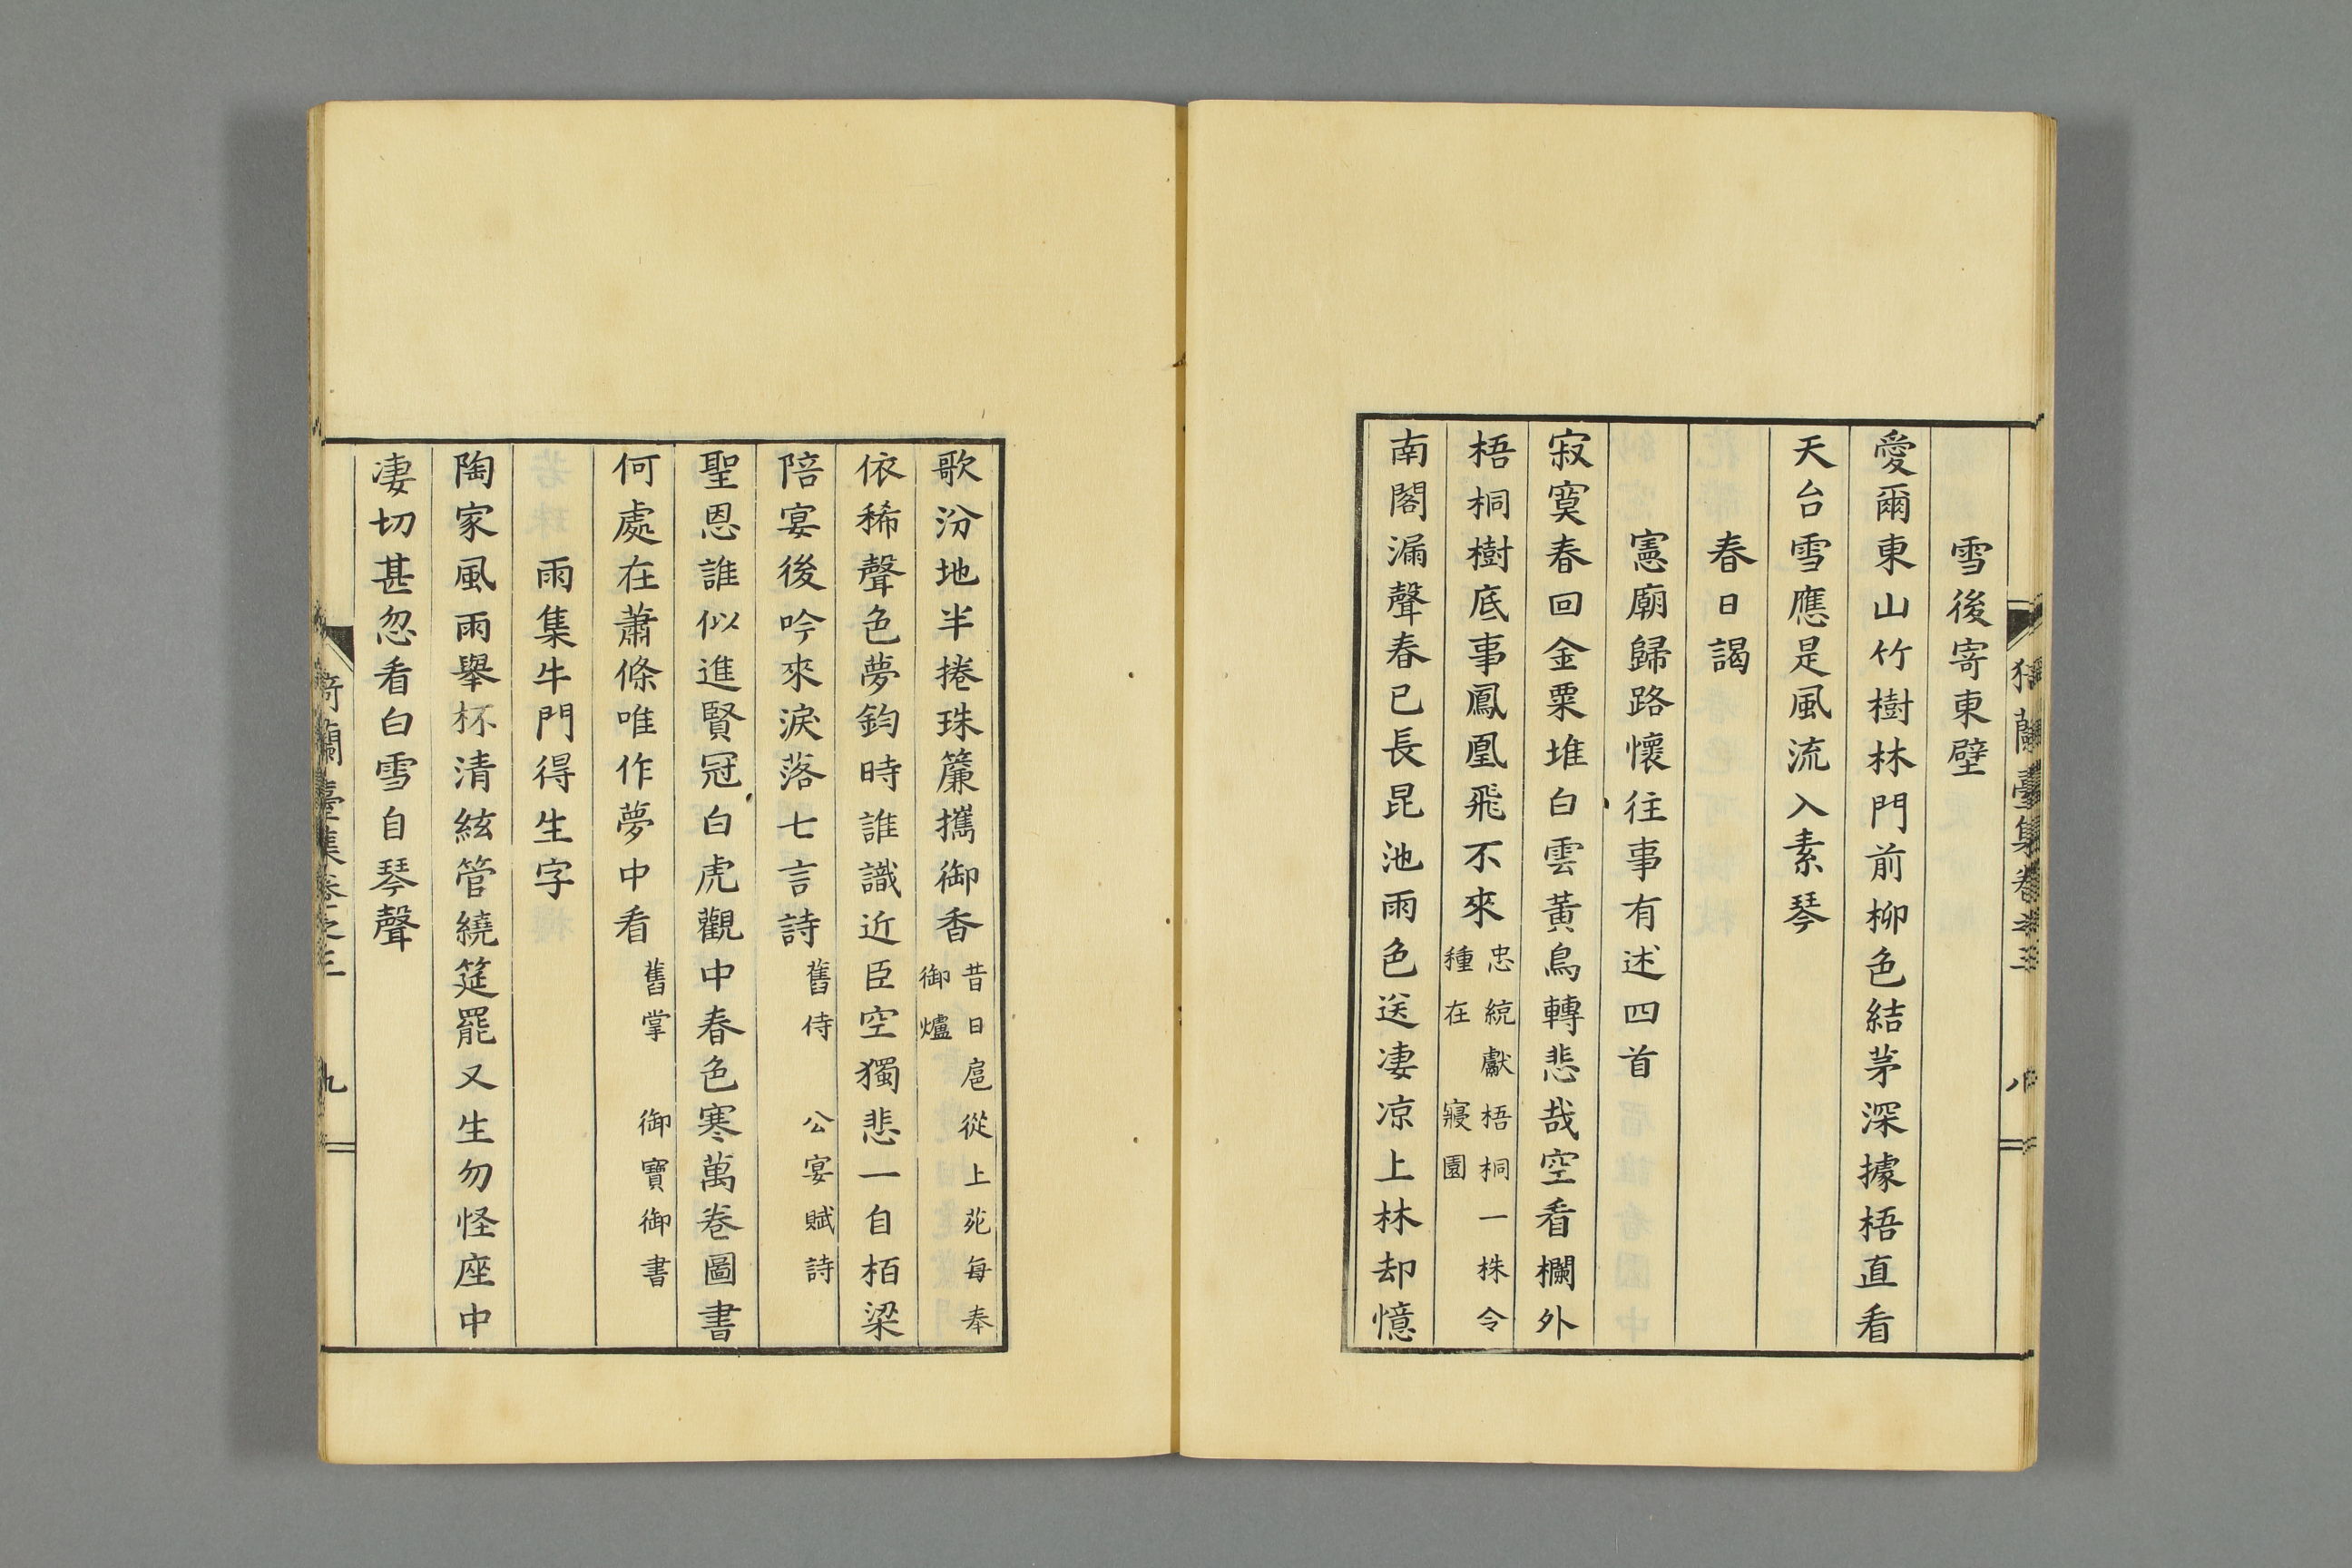 雪後寄東壁
愛爾東山竹樹林門前柳色結茅深據梧直看
天台雪應是風流入素琴
春日謁
憲廟歸路懷往事有述四首
寂寞春回金粟堆白雲黃鳥轉悲哉空看欄外
梧桐樹底事鳳凰飛不來
忠統獻梧桐一株令
種在寢園
南閣漏聲春已長昆池雨色送凄凉上林却憶
歌汾地半捲珠簾攜御香
昔日扈從上苑每奉
御爐
依稀聲色夢鈞時誰識近臣空獨悲一自栢梁
陪宴後吟來淚落七言詩
舊侍 公宴賦詩
聖恩誰似進賢冠白虎觀中春色寒萬卷圖書
何處在蕭條唯作夢中看
舊掌 御寶御書
雨集牛門得生字
陶家風雨舉杯清絃管繞筵罷又生勿怪座中
凄切甚忽看白雪自琴聲
蘭臺集卷之三
九